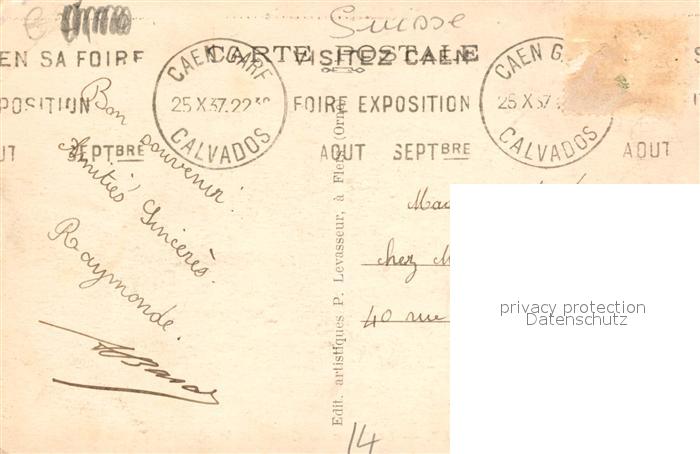 Suisse
CARTE POSTALE
EN SA FOIRE
VISITEZ CAEN
CAEN GARE
25 X 37. 22
CALVADOS
CAEN G
25 X 37
CALVADOS
POSITION
FOIRE EXPOSITION
UT SEPTBRE
AOUT SEPTBRE
AOUT
Bon souvenir.
Amitiés Sincères.
Raymonde
Mad
chez M
40 rue
Edit. artistiques P. Levasseur, à Flers (Orne)
14
privacy protection
Datenschutz